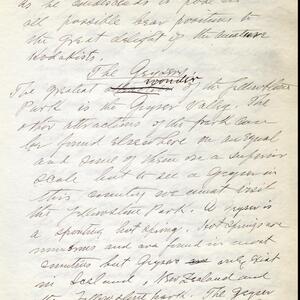 all possible bear positions to
the great delight of the amateur
Kodakists.
The Geysers
wonder
The greatest of the Yellowstone
Park is the Geyser Valley. The
other attractions of the park can
be found elsewhere on an equal
and some of them on a superior
scale but to see a Geyser in
this country we must visit
the Yellowstone Park. A geyser is
a spouting hot spring. Hot springs are
numerous and are found in most
countries but Geysers only exist
in Iceland, New Zealand and
the Yellowstone park. The Geyser